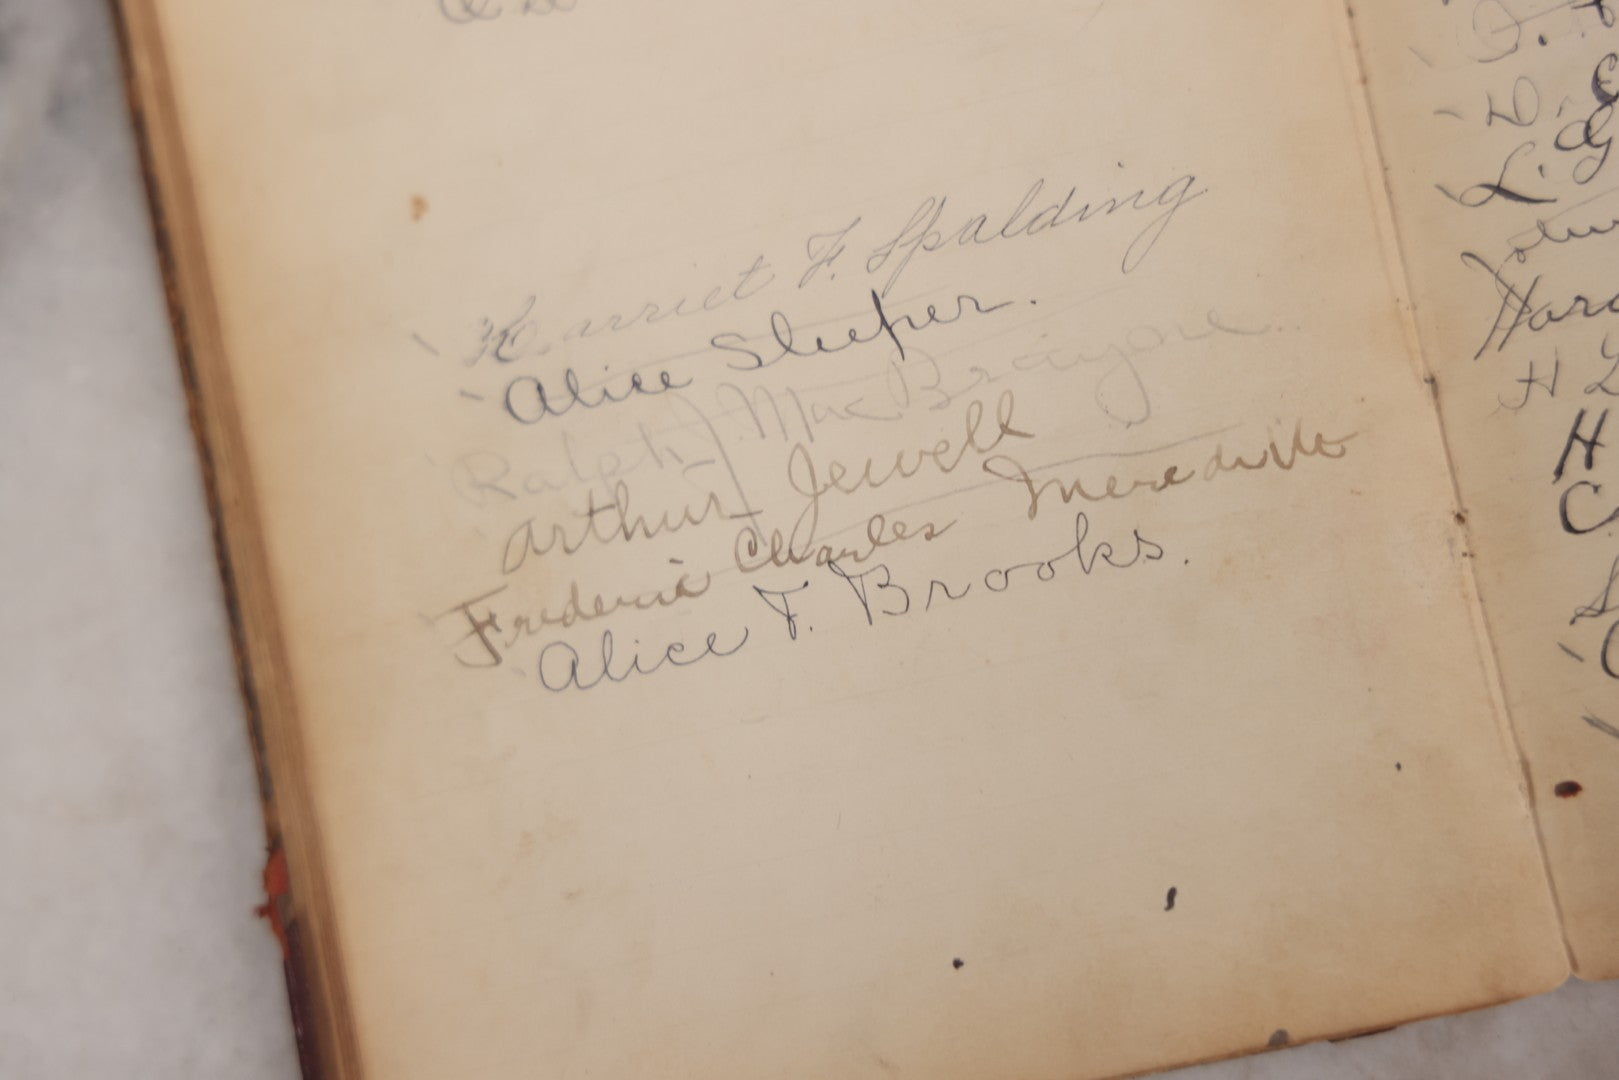 Harriet F. Spalding
Alice Sleeper.
Ralph MacBrayne
Arthur Jewell
Frederic Charles Meredith
Alice T. Brooks.
D.
L. G
John
Haro
H L
H
C.